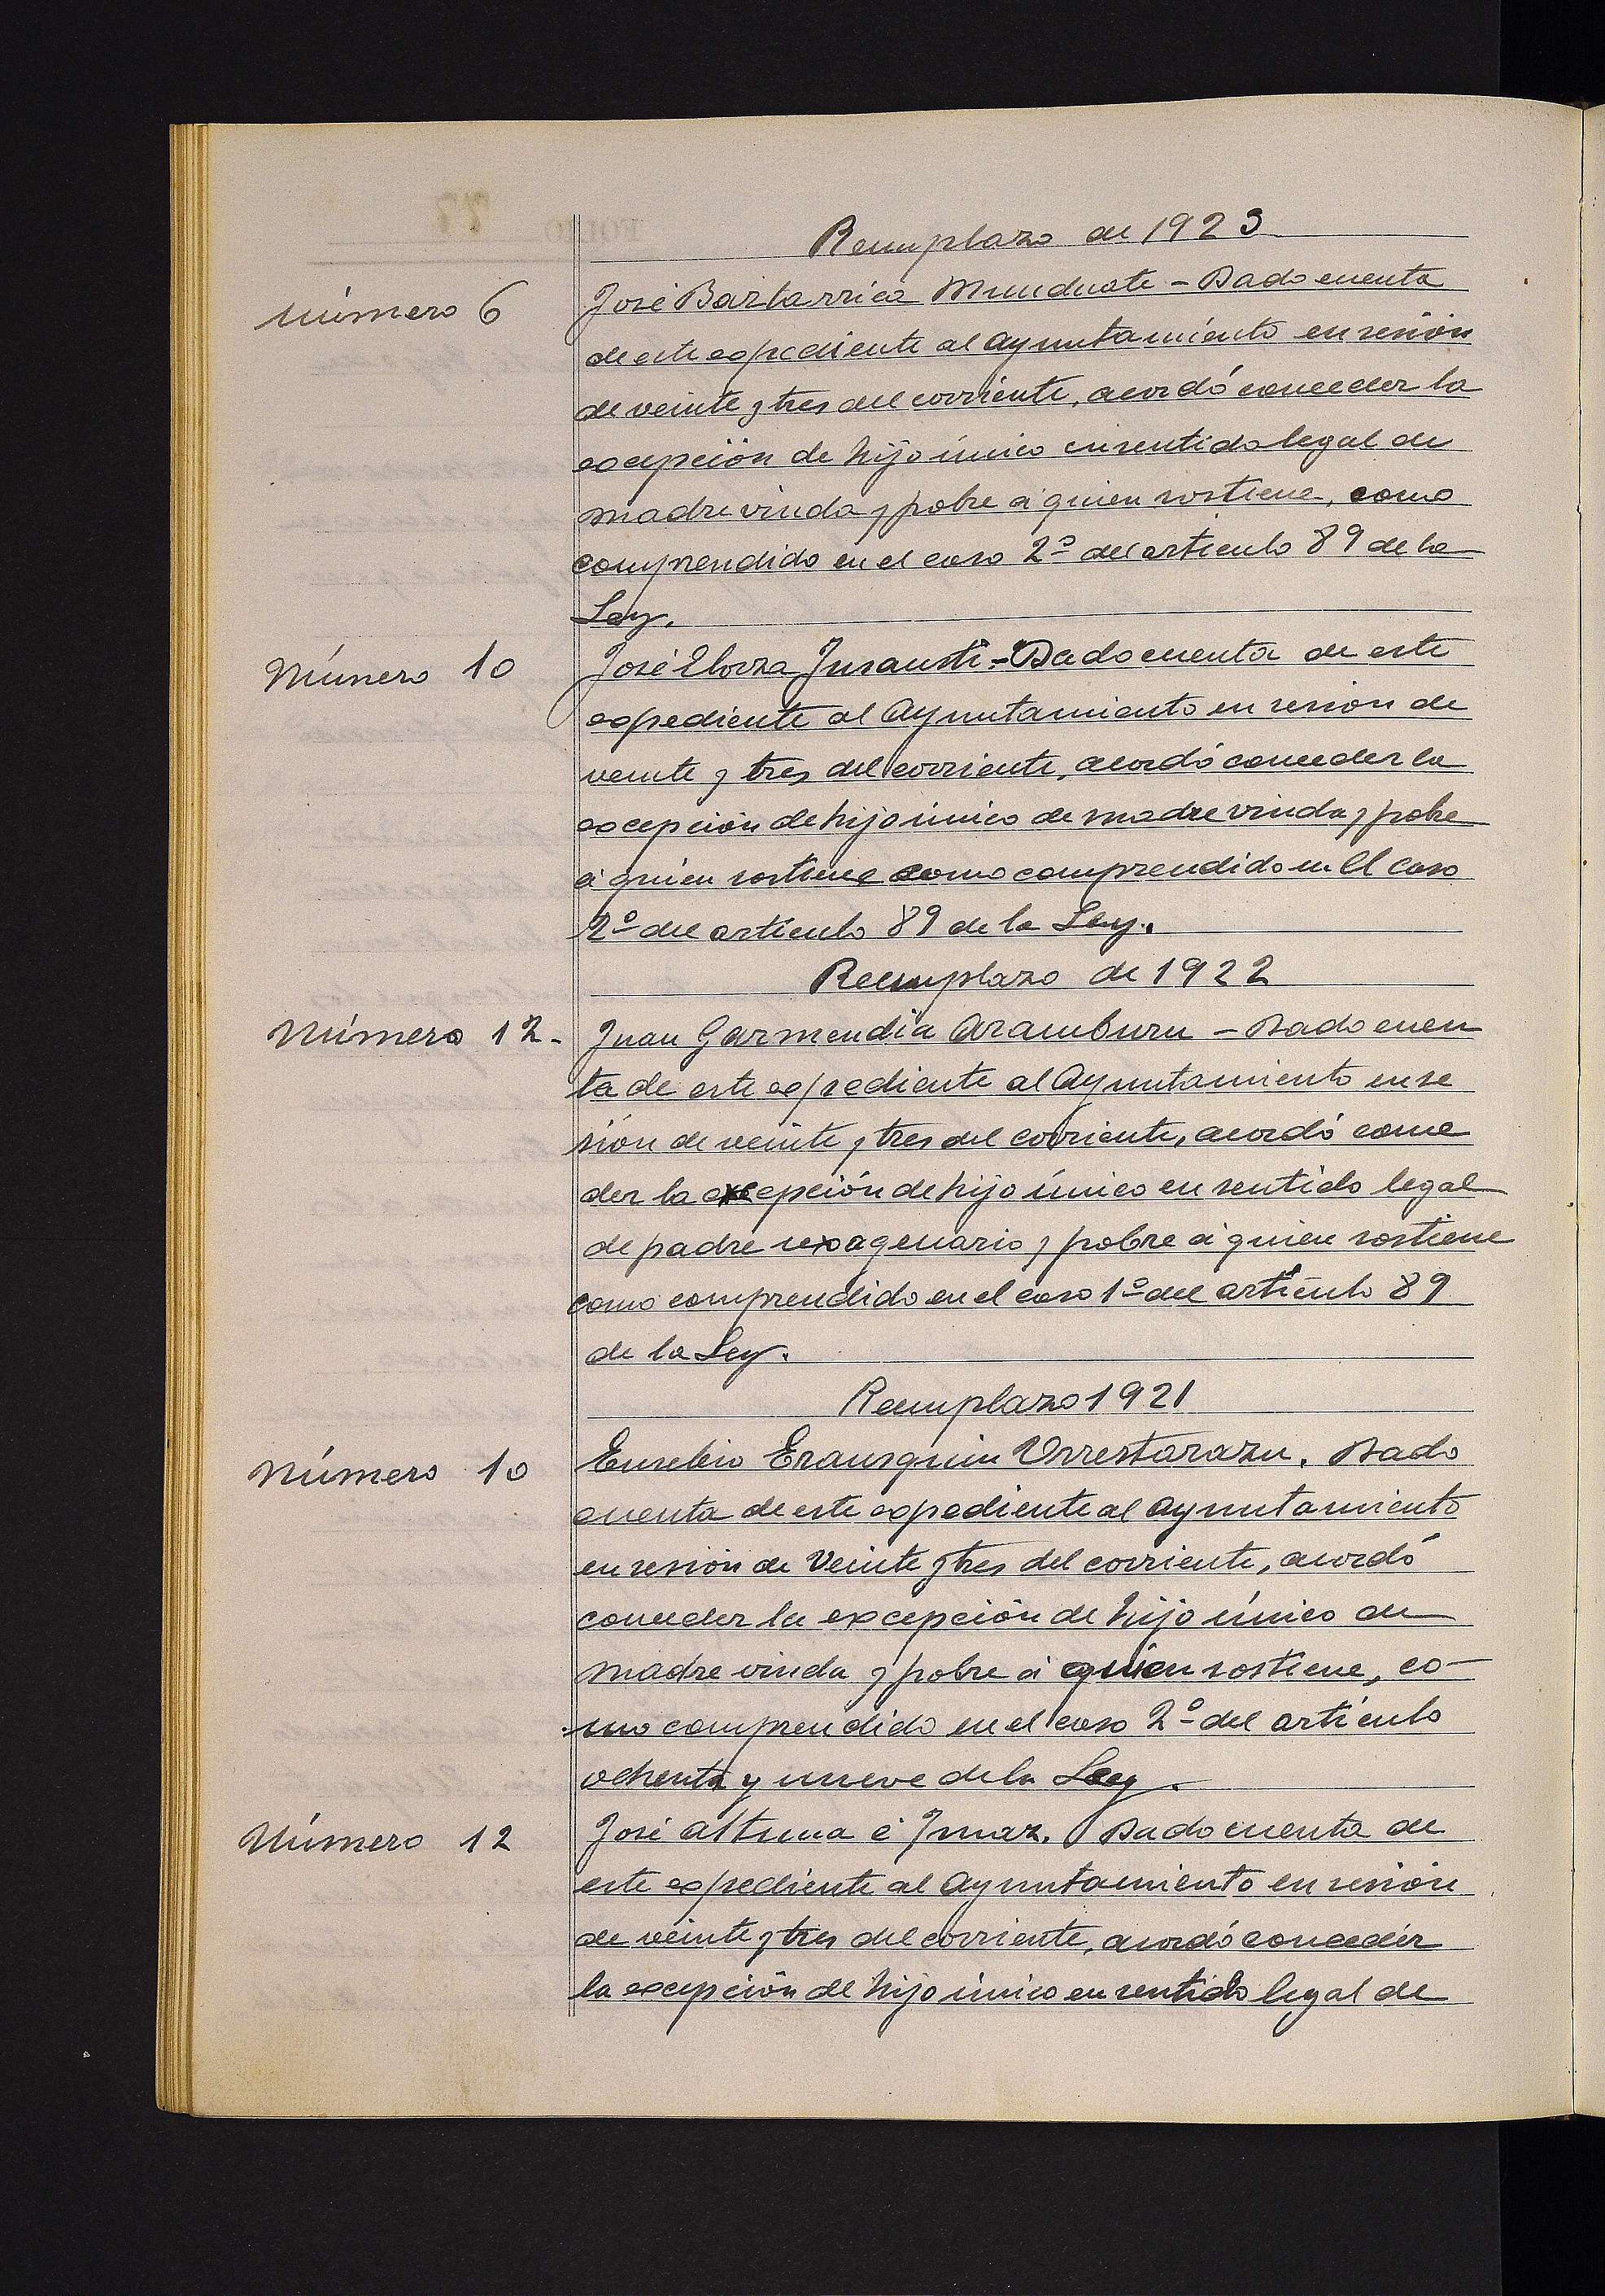 Reemplazo de 1923
Número 6
José Baztarrica Munduate - Dado cuenta
de este expediente al Ayuntamiento en sesión
de veinte y tres del corriente, acordó conceder la
excepción de hijo único en sentido legal de
madre viuda y pobre á quien sostiene, como
comprendido en el caso 2º del artículo 89 de la
Ley.
Número 10
José Elorza Insausti - Dado cuenta de este
expediente al Ayuntamiento en sesión de
veinte y tres del corriente, acordó conceder la
excepción de hijo único de madre viuda y pobre
á quien sostiene como comprendido en el caso
2º del artículo 89 de la Ley.
Reemplazo de 1922
Número 12-
Juan Garmendia Aramburu - Dado cuen
ta de este expediente al Ayuntamiento en se
sión de veinte y tres del corriente, acordó conce
der la excepción de hijo único en sentido legal
de padre sexagenario y pobre á quien sostiene
como comprendido en el caso 1º del artículo 89
de la Ley.
Reemplazo 1921
Número 10
Eusebio Eransquin Urrestarazu. Dado
cuenta de este expediente al Ayuntamiento
en sesión de Veinte y tres del corriente, acordó
conceder la excepción de hijo único de
madre viuda y pobre á quien sostiene, co-
mo comprendido en el caso 2º del artículo
ochenta y nueve de la Ley.
Número 12
José Altuna é Imaz. Dado cuenta de
este expediente al Ayuntamiento en sesión
de veinte y tres del corriente, acordó conceder
la excepción de hijo único en sentido legal de